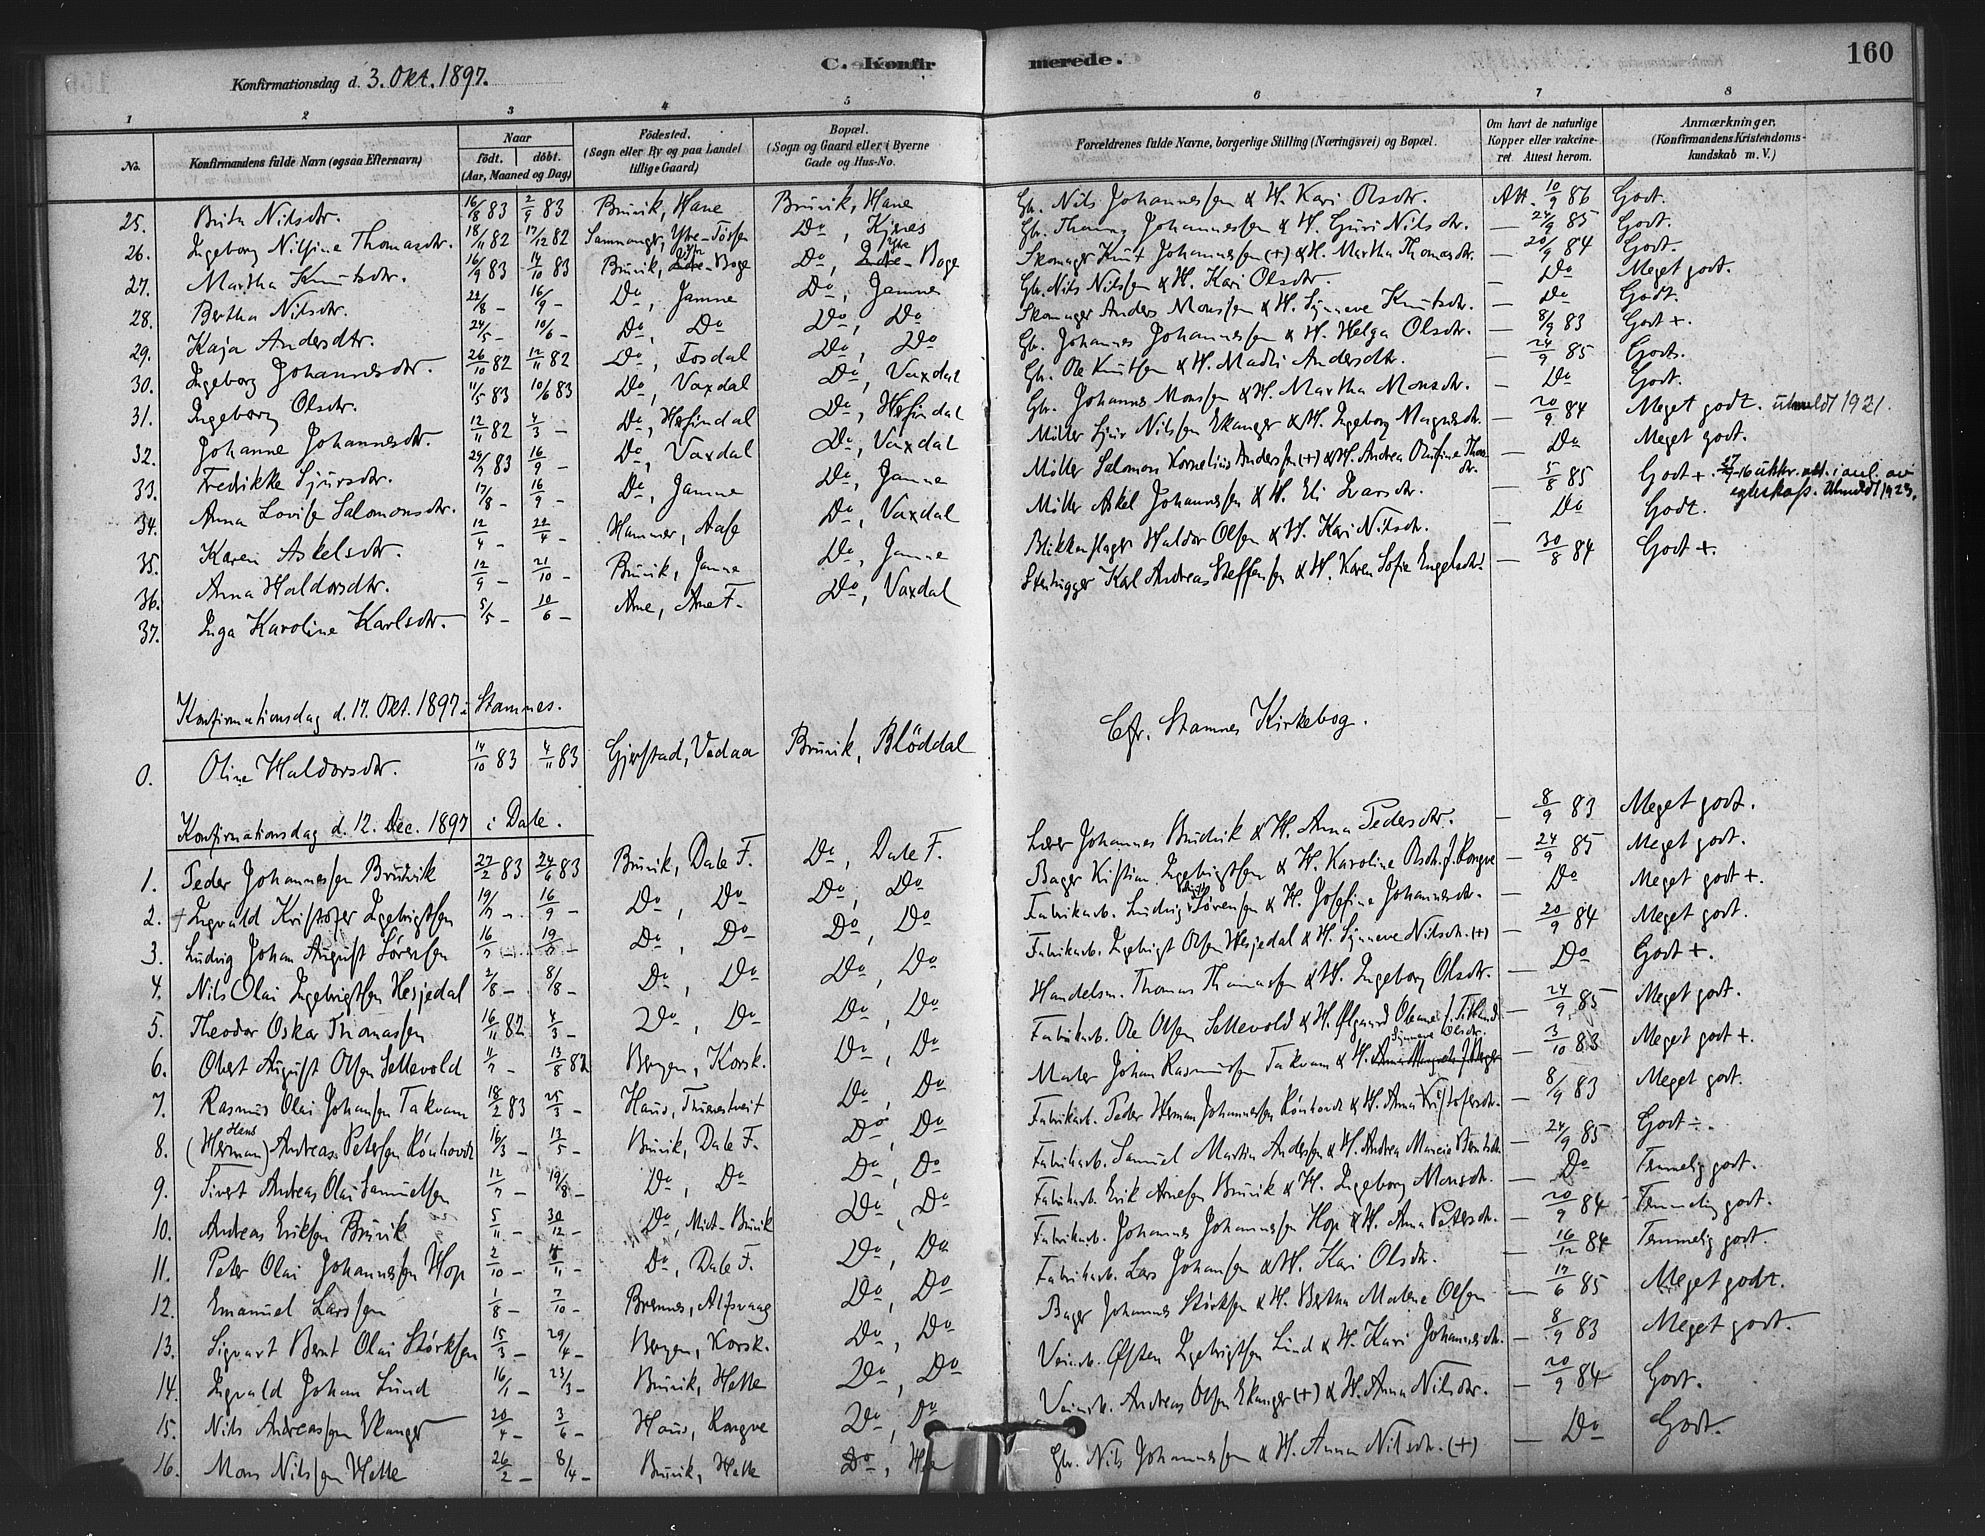 160
Konfirmationsdag d. 3. Okt. 1897.
C. Konfirmerede.
1 2 3 4 5 6 7 8
No.
Konfirmandens fulde Navn (ogsaa Efternavn)
Naar født. døbt. (Aar, Maaned og Dag)
Födested. (Sogn eller By og paa Landet tillige Gaard)
Bopæl. (Sogn og Gaard eller i Byerne Gade og Hus-No.
Forældrenes fulde Navne, borgerlige Stilling (Næringsvei) og Bopæl.
Om havt de naturlige Kopper eller vakcineret. Attest herom.
Anmærkninger. (Konfirmandens Kristendomskundskab m. V.)
25. Brita Nilsdtr. 16/8 83 2/9 83 Bruvik, Hane Bruvik, Hane Gbr. Nils Johannessen & H. Kari Olsdtr. Att. 10/9 86 Godt.
26. Ingeborg Nilsine Thomasdtr. 18/11 82 17/12 82 Samnanger, Ytre-Tösse Do, Kjenes Gbr. Thomas Johannessen & H. Guri Nilsdtr. — 24/9 85 Godt.
27. Martha Knutsdtr. 16/9 83 14/10 83 Bruvik, Ytre-Boge Do, Ytre-Boge Skomager Knut Johannessen (+) & H. Martha Thomasdtr. — 20/9 84 Godt.
28. Bertha Nilsdtr. 22/8 — 16/9 — Do, Jamne Do, Jamne Gbr. Nils Nilssen & H. Kari Olsdtr. — Do Meget godt.
29. Kaja Andersdtr. 24/5 — 10/6 — Do, Do Do, Do Skomager Anders Monssen & H. Synneve Knutsdtr. — Do Godt.
30. Ingeborg Johannesdtr. 26/10 82 12/11 82 Do, Fosdal Do, Do Gbr. Johannes Johannessen & H. Helga Olsdtr. — 8/9 83 Godt +.
31. Ingeborg Olsdtr. 11/5 83 10/6 83 Do, Vaxdal Do, Vaxdal Gbr. Ole Knutsen & H. Madli Andersdtr. — 24/9 85 Godt.
32. Johanne Johannesdtr. 12/11 82 4/3 — Do, Hesjindal Do, Hesjindal Gbr. Johannes Monssen & H. Martha Monsdtr. — Do Godt.
33. Fredrikke Sjursdtr. 29/7 83 16/9 — Do, Vaxdal Do, Vaxdal Möller Sjur Nilssen Ekanger & H. Ingeborg Magnesdtr. — 20/9 84 Meget godt. Utmeldt 1921.
34. Anna Lovise Salomonsdtr. 17/8 — 16/9 — Do, Jamne Do, Jamne Möller Salomon Kornelius Anderssen (+) & H. Andrea Olufine Thomasdtr. — Do Meget godt.
35. Karen Askelsdtr. 12/4 — 22/4 — Hammer, Aase Do, Vaxdal Möller Askel Johannessen & H. Eli Ivarsdtr. — 5/8 85 Godt +. utskr. utst. i anl. av egteskap. Utmeldt 1923.
36. Anna Haldorsdtr. 12/9 — 21/10 — Bruvik, Jamne Do, Jamne Blikkenslager Haldor Olsen & H. Kari Nilsdtr. — Do Godt.
37. Inga Karoline Karlsdtr. 5/5 — 10/6 — Arne, Arne F. Do, Vaxdal Stenhugger Karl Andreas Steffensen & H. Karen Sofie Engelsdtr. — 30/8 84 Godt +.
Konfirmationsdag d. 17. Okt. 1897 i Stamnes.
Cfr. Stamnes Kirkebog.
0. Oline Haldorsdtr. 14/10 83 4/11 83 Gjerstad, Vedaa Bruvik, Blöddal
Konfirmationsdag d. 12. Dec. 1897 i Dale.
1. Peder Johannessen Brudvik 27/2 83 24/6 83 Bruvik, Dale F. Do, Dale F. Lærer Johannes Brudvik & H. Anna Pedersdtr. — 8/9 83 Meget godt.
2. + Ingvald Kristofer Ingebrigtsen 19/7 — 16/9 — Do, Do Do, Do Bager Kristian Ingebrigtsen & H. Karoline Olsdtr. f. Rongve — 24/9 85 Meget godt.
3. Ludvig Johan August Sörensen 16/7 — 19/8 — Do, Do Do, Do Fabrikarb. Ludvig Sörensen & H. Josefine Johannesdtr. — Do Meget godt +.
4. Nils Olai Ingebrigtsen Hesjedal 2/8 — 8/8 — Do, Do Do, Do Fabrikarb. Ingebrigt Olsen Hesjedal & H. Synneve Nilsdtr. (+) — 20/9 84 Meget godt.
5. Theodor Oskar Thomassen 16/11 82 4/3 — Do, Do Do, Do Handelsm. Thomas Thomassen & H. Ingeborg Olsdtr. — Do Godt +.
6. Olert August Olsen Settevold 11/7 — 13/8 82 Bergen, Korsk. Do, Do Fabrikarb. Ole Olsen Settevold & H. Ølgaard — 24/9 85 Meget godt.
7. Rasmus Olai Johansen Takvam 18/2 83 25/3 — Haus, Thunestveit Do, Do Maler Johan Rasmussen Takvam & H. Synneve Olsdtr. — 3/10 83 Meget godt +.
8. (Herman) Hans Andreas Petersen Rönhovde 16/3 — 13/5 — Bruvik, Dale F. Do, Do Fabrikarb. Peder Herman Johannessen Rönhovde & H. Anna Kristofersdtr. — 8/9 83 Meget godt.
9. Sivert Andreas Olai Samuelsen 12/7 — 19/8 — Do, Do Do, Do Fabrikarb. Samuel Martin Anderssen & H. Andrea Maria Berntsdtr. — 24/9 85 Godt ÷.
10. Andreas Eriksen Bruvik 5/11 — 30/12 — Do, Midt-Bruvik Do, Do Fabrikarb. Erik Arnesen Bruvik & H. Ingeborg Monsdtr. — Do Temmelig godt.
11. Peter Olai Johannessen Hop 2/10 — 18/11 — Do, Dale F. Do, Do Fabrikarb. Johannes Johannessen Hop & H. Anna Petersdtr. — 20/9 84 Temmelig godt.
12. Emanuel Larssen 1/8 — 7/10 — Bremnes, Alfsvaag Do, Do Fabrikarb. Lars Johansen & H. Kari Olsdtr. — 16/12 84 Temmelig godt.
13. Sigvart Bernt Olai Størksen 15/3 — 29/4 — Bergen, Korsk. Do, Do Bager Johannes Størksen & H. Bertha Malene Olsen — 17/6 85 Meget godt.
14. Ingvald Johan Lund 16/1 — 23/3 — Bruvik, Helle Do, Do Veiarb. Østen Ingebrigtsen Lund & H. Kari Johannesdtr. — 8/9 83 Meget godt.
15. Nils Andreassen Ekanger 20/4 — 3/6 — Haus, Rongve Do, Do Veiarb. Andreas Olsen Ekanger (+) & H. Anna Nilsdtr. — 20/9 84 Godt.
16. Mons Nilssen Helle 26/2 — 8/4 — Bruvik, Helle Do, Gbr. Nils Johannessen & H. Anna Nilsdtr. (+) — Do Godt.